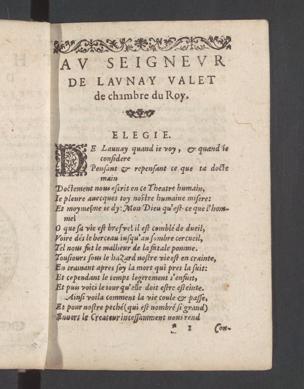 AV SEIGNEVR
DE LAVNAY VALET
de chambre du Roy.
ELEGIE.
DE Launay quand ie voy, & quand ie
considere
Pensant & repensant ce que ta docte
main
Doctement nous escrit en ce Theatre humain,
Ie pleure auecques toy nostre humaine misere:
Et moymesme ie dy: Mon Dieu qu'est-ce que l'hom-
me!
O que sa vie est bref vel il est comblé de dueil,
Voire dés le berceau iusqu'au sombre cercueil,
Tel nous fut le malheur de la fatale pomme.
Tousiours sous le hazard nostre vie est en crainte,
En trainant apres soy la mort qui pres la suit:
Et cependant le temps legerement s'enfuit,
Et puis voici le iour qu'elle doit estre esteinte.
Ainsi voila comment la vie coule & passe,
Et pour nostre peché (qui est nombré si grand)
Enuers le Createur incessamment nous rend
* 1 Con-